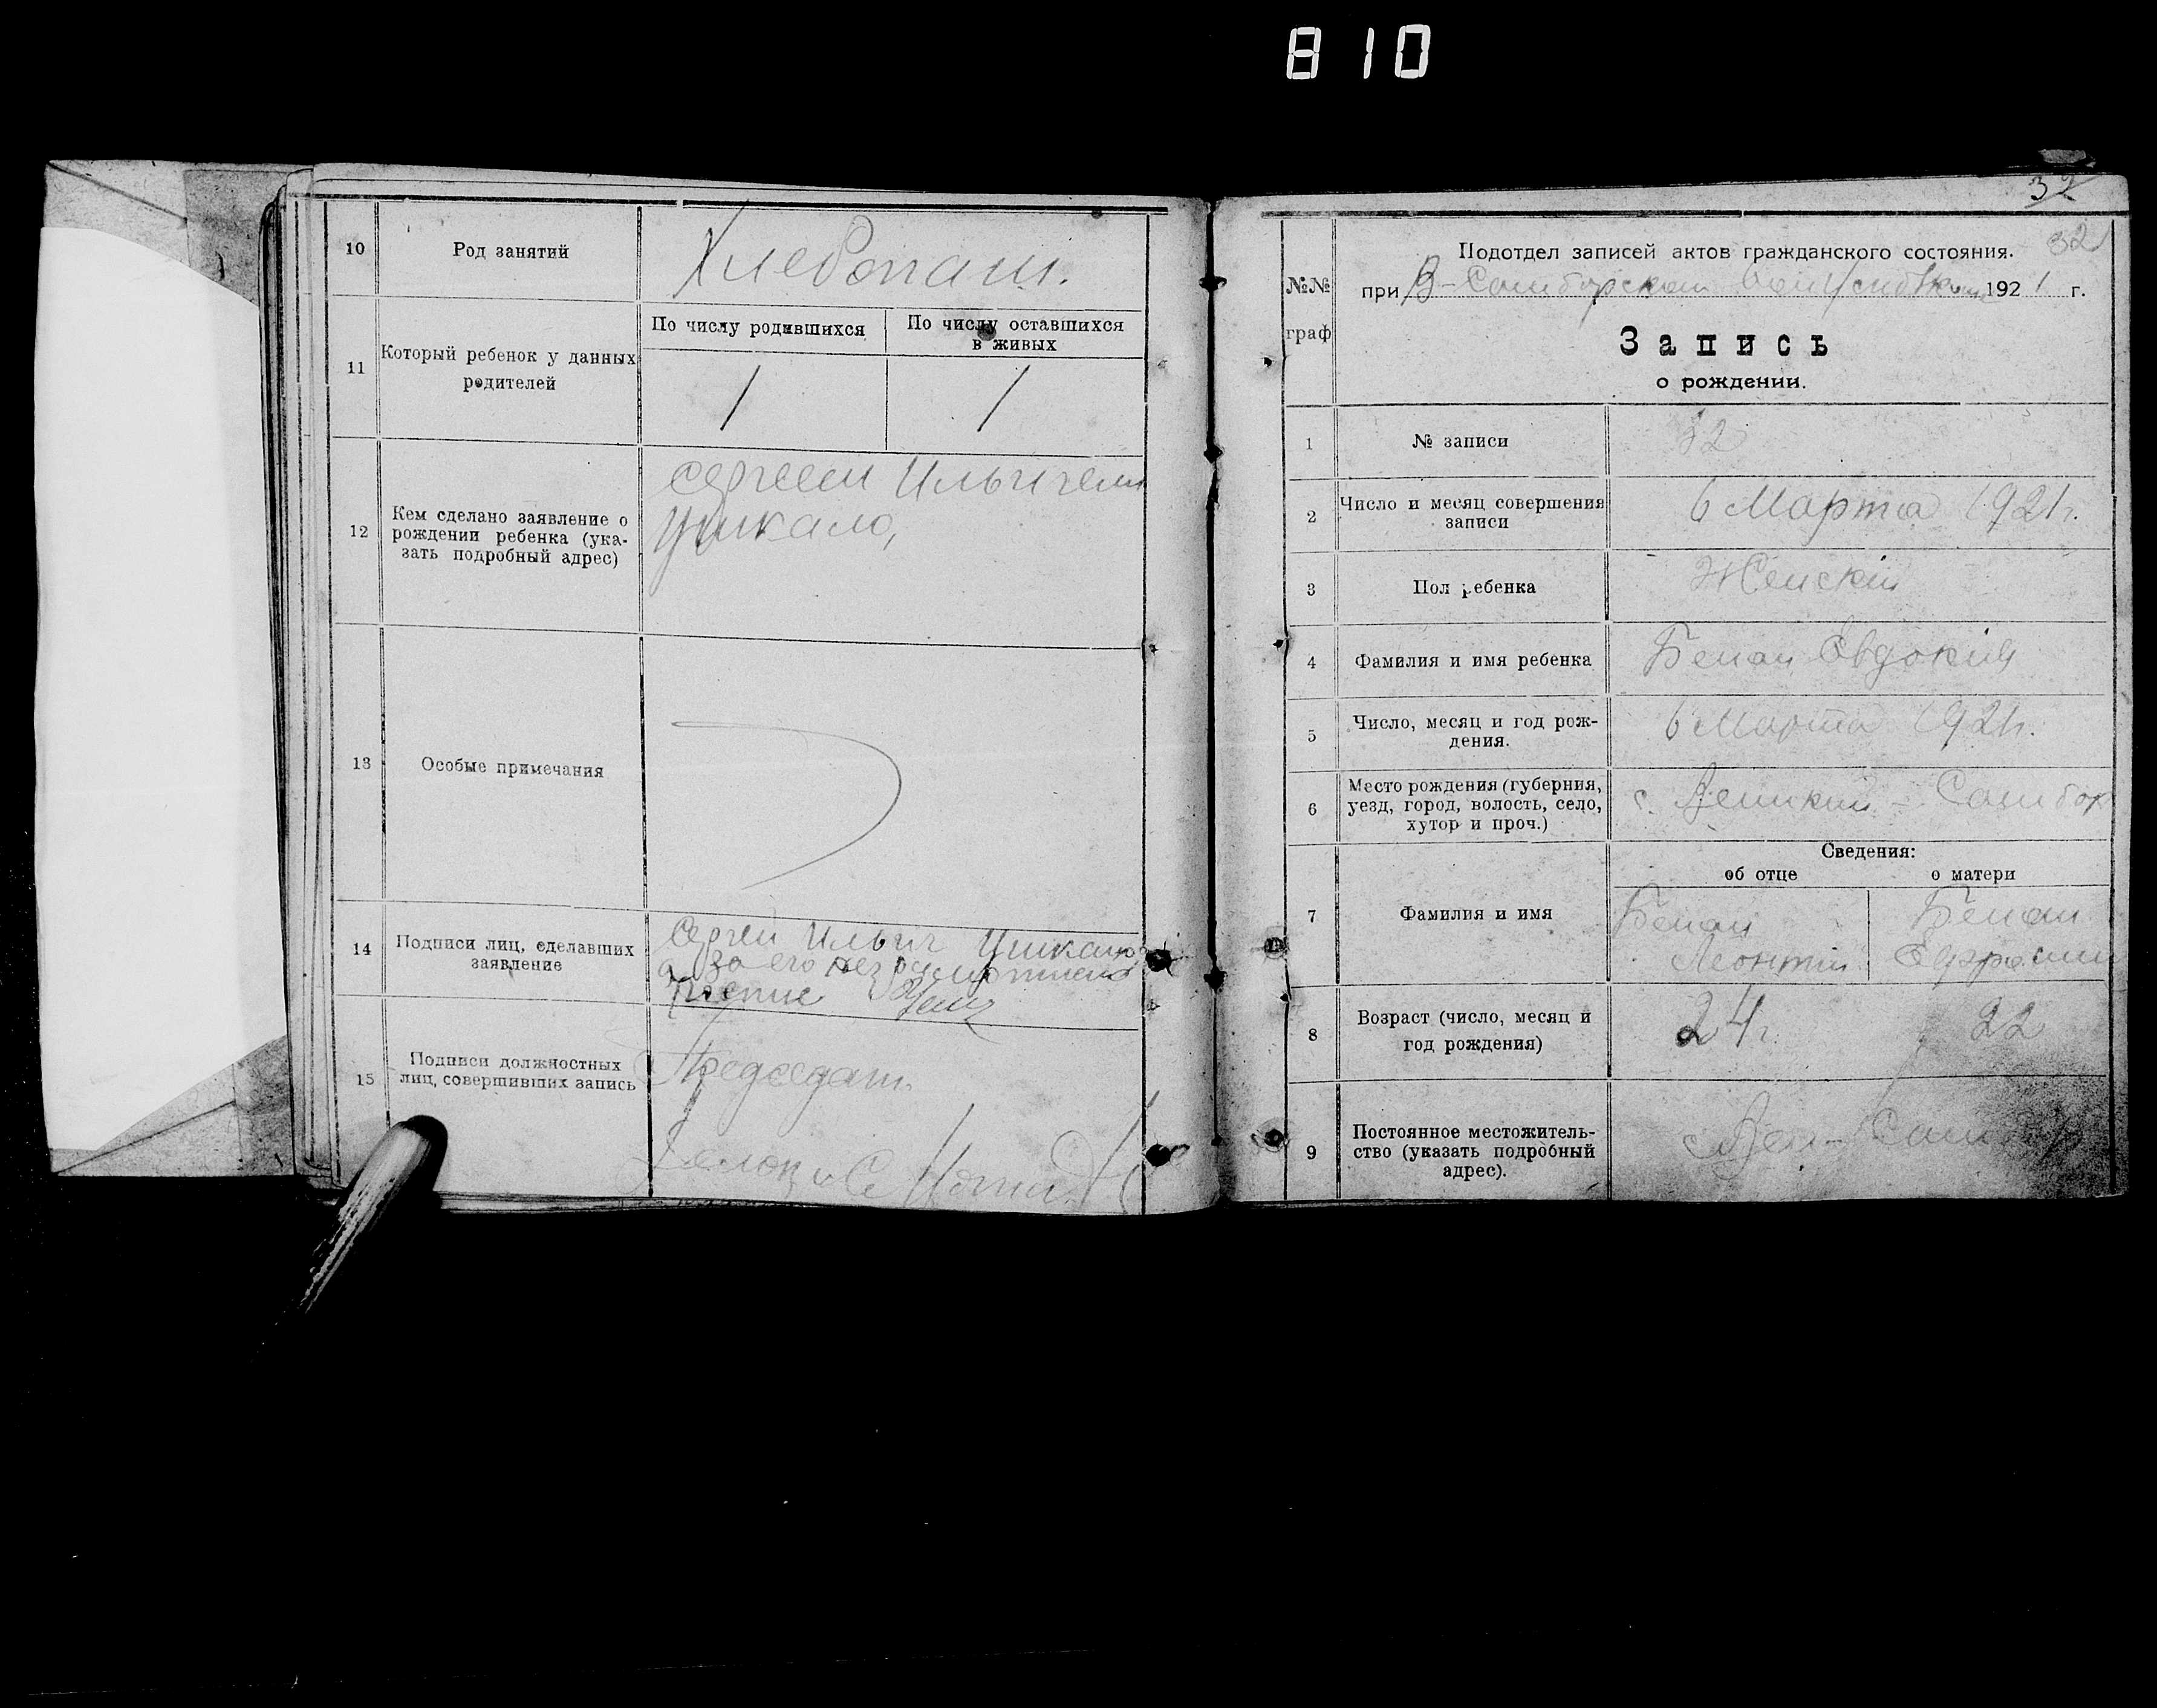 810
10
Род занятий
Хлебопаш.
11
Который ребенок у данных
родителей
По числу родившихся
По числу оставшихся
в живых
1
1
12
Кем сделано заявление о
рождении ребенка (ука-
зать подробный адрес)
Сергеем Ильичем
13
Особые примечания
14
Подписи лиц, сделавших
заявление
Сергей Ильич
а за его
15
Подписи должностных
лиц, совершивших запись
Председат.
32
32
№№
граф
Подотдел записей актов гражданского состояния.
при В-Самборском 1921 г.
Запись
о рождении.
1
№ записи
32
2
Число и месяц совершения
записи
6 Марта 1921 г.
3
Пол ребенка
Женскій
4
Фамилия и имя ребенка
Евдокия
5
Число, месяц и год рож-
дения.
6 Марта 1921 г.
6
Место рождения (губерния,
уезд, город, волость, село,
хутор и проч.)
с. Великий-Самбор
Сведения:
об отце
о матери
7
Фамилия и имя
Леонтий
8
Возраст (число, месяц и
год рождения)
24 г.
22
9
Постоянное местожитель-
ство (указать подробный
адрес).
с. Вел-Самбор